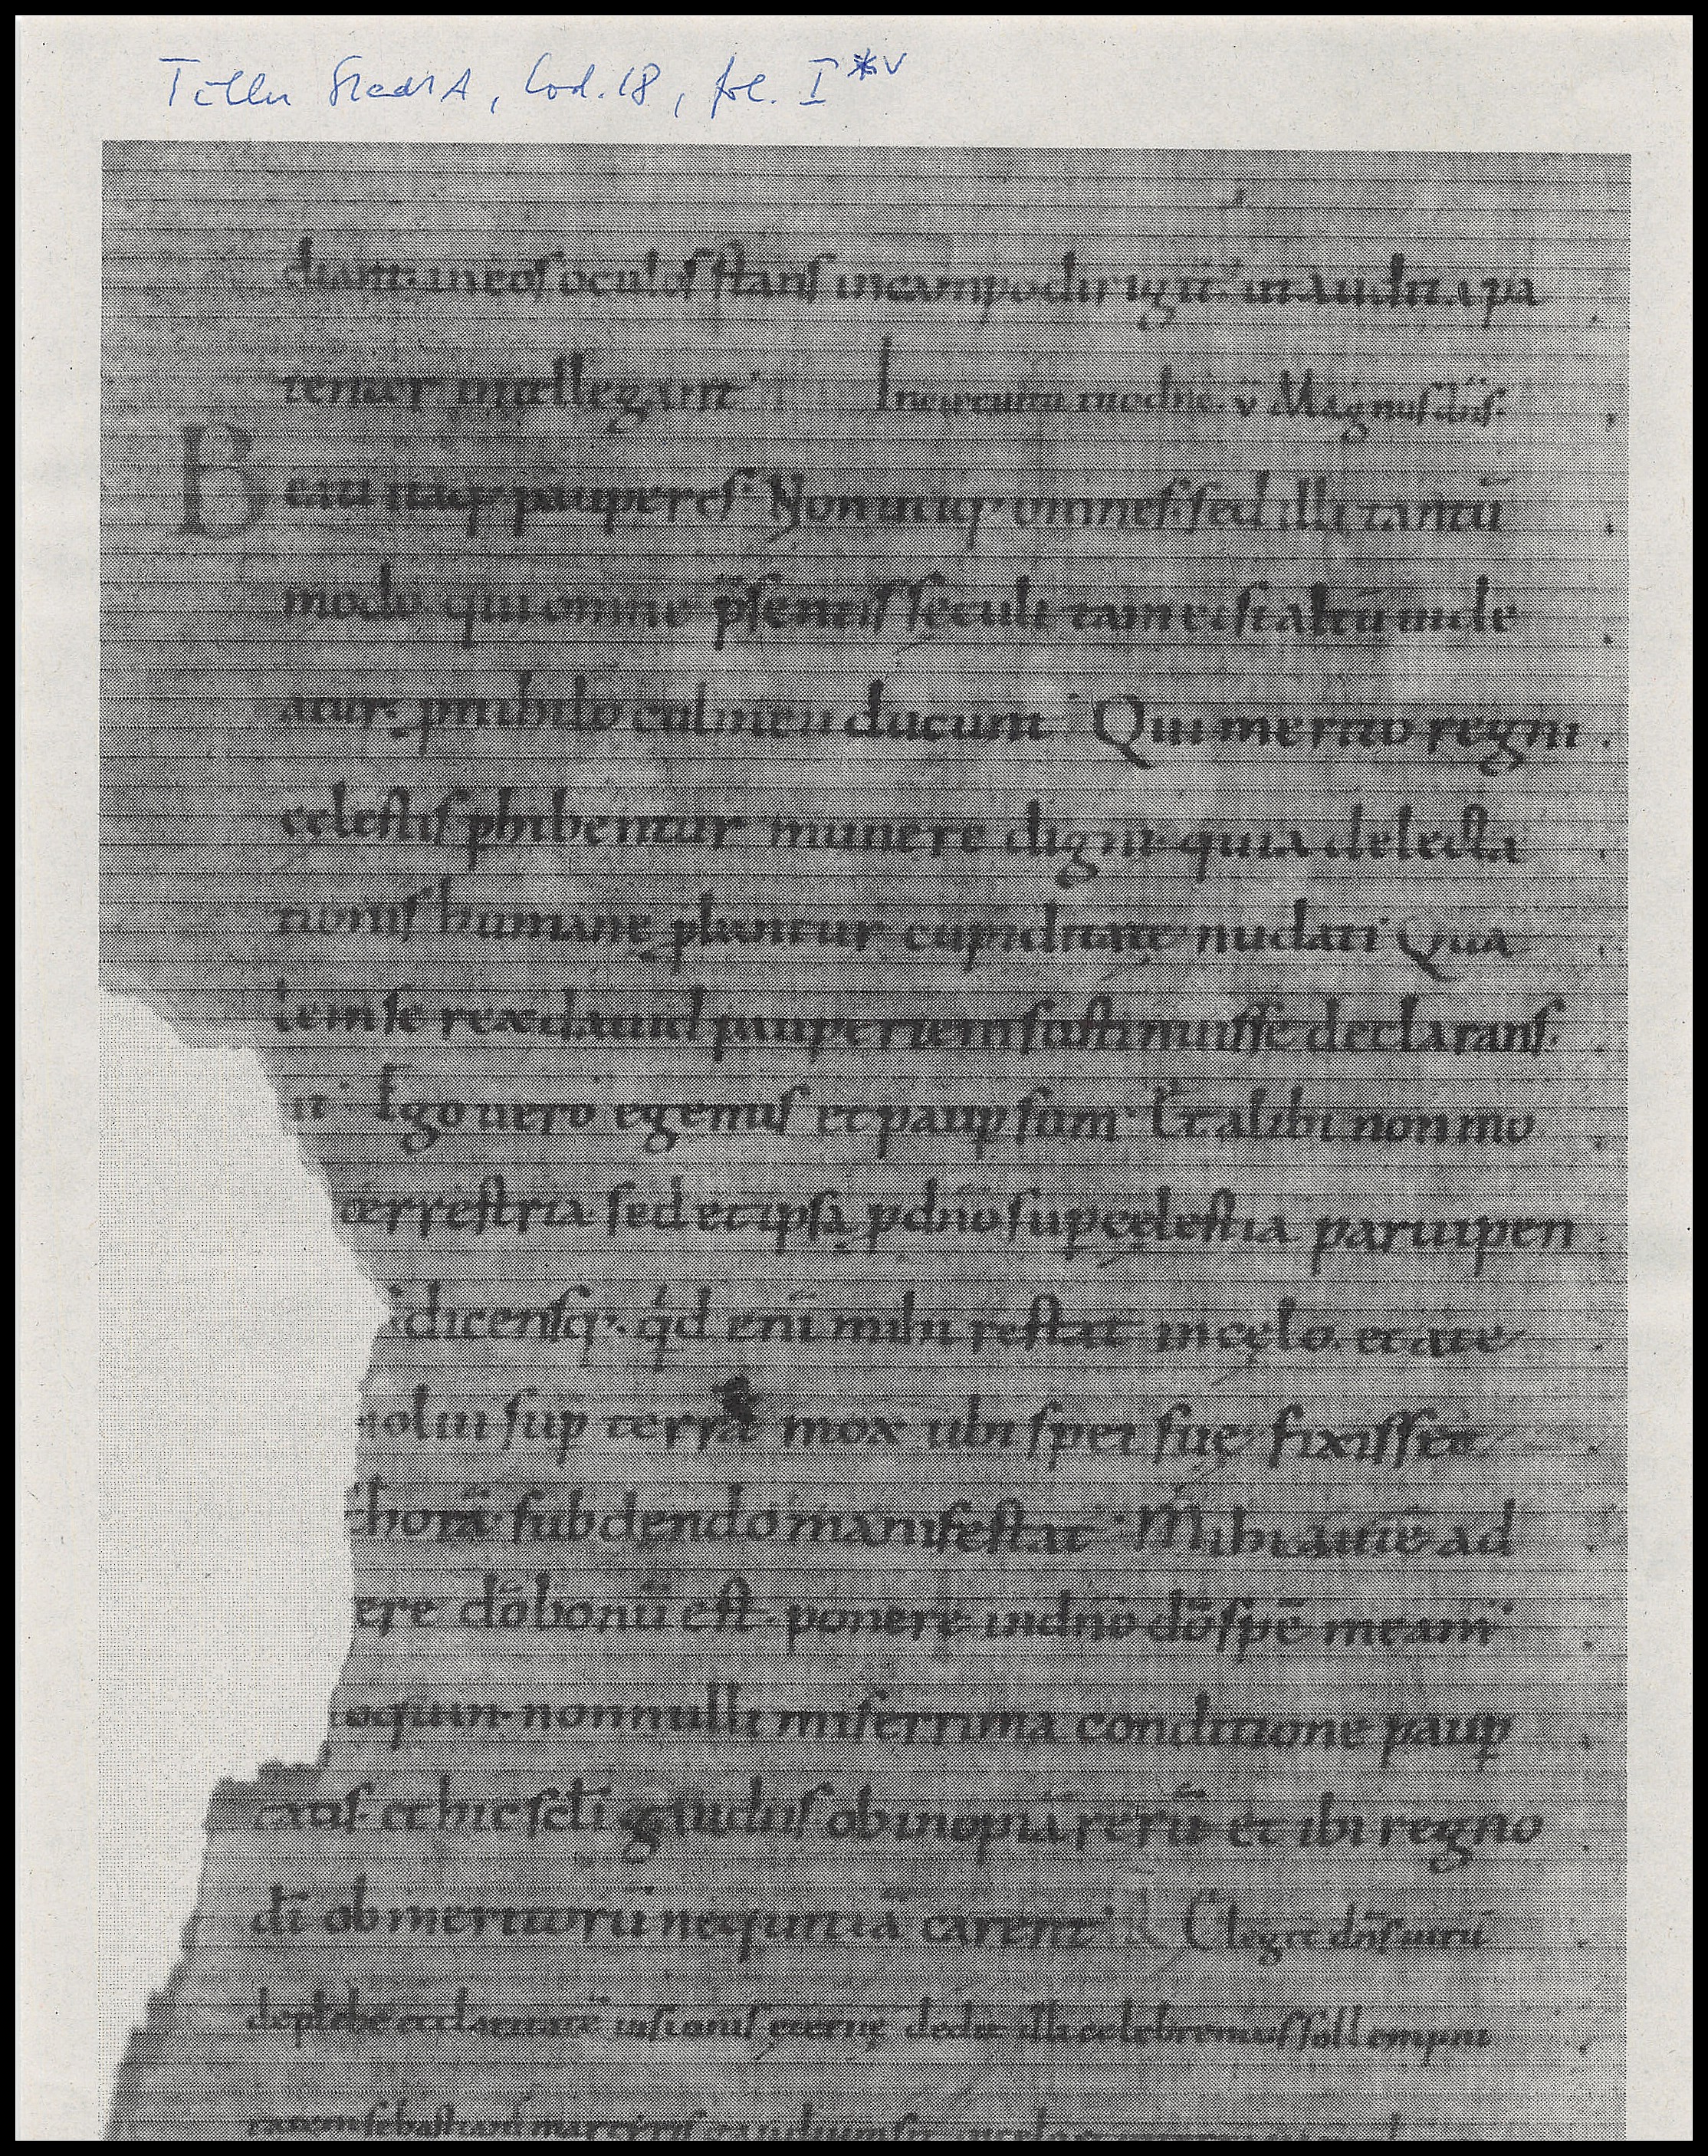 Cod. 18, fol. I*v
diam. in eos oculos stans in campo dirigit. ut audita pa
tenter intellegant.
Beati itaq; pauperes. Non utiq; omnes. sed illi tantū
modo. qui omne p̄sentis seculi tam etsi altū uide
atur. p nihilo culmen ducunt. Qui merito regni
celestis phibentur munere digni. quia delecta
tionis humanę plantur cupiditate nudati. Qua
lem se rex dauid pauperiem sustinuisse declarans
it. Ego uero egenus et paup sum. Et alibi non mo
terrestria. sed et ipsa p dn̄o sup cęlestia paruipen
dicensq;. qd enī mihi restat in cęlo. et a te
uolui sup terrā mox ubi spei suę fixisset
chorā subdendo manifestat. Mihi autē ad
ere dō bonū est. ponere in dn̄o dō spē meam.
oquin. nonnulli miserrima conditione paup
tatis. et hic scti gaudiis ob inopiā rerū et ibi regno
dī ob meritorū nequitiā carent. Elegit dn̄s uirū
de plebe et claritatē uisionis eternę dedit illi celebremus sollempni